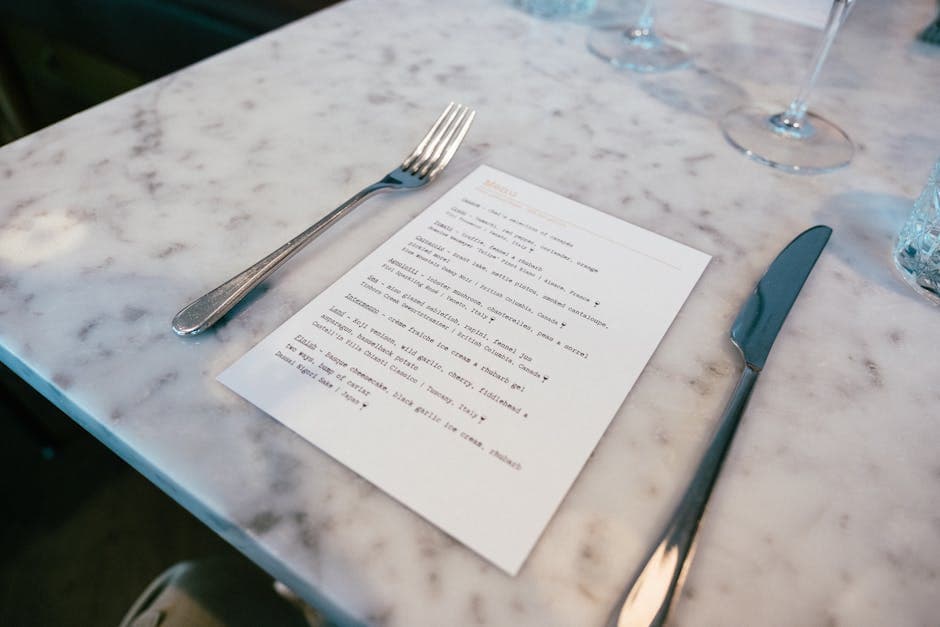 Menu
Canape - Chef's selection of canapés
- Gambari, red pepper, coriander, orange
Fiol Prosecco | Veneto, Italy
Tomato - truffle, fennel & rhubarb
Domaine | Alsace, France
- Brant lake, nettle pistou, smoked cantaloupe,
pickled morel
Blue Mountain Gamay Noir | British Columbia, Canada
Agnolotti - lobster mushroom, chanterelles, peas & sorrel
Fiol Sparkling Rosé | Veneto, Italy
Sea - miso glazed sablefish, rapini, fennel jus
Tinhorn Creek Gewurztraminer | British Columbia, Canada
Intermezzo - crème fraîche ice cream & rhubarb gel
Land - Koji venison, wild garlic, cherry, fiddlehead &
asparagus, hasselback potato
Castell'in Villa Chianti Classico | Tuscany, Italy
Finish - Basque cheesecake, black garlic ice cream, rhubarb
two ways, bump of caviar
Dassai Nigori Sake | Japan